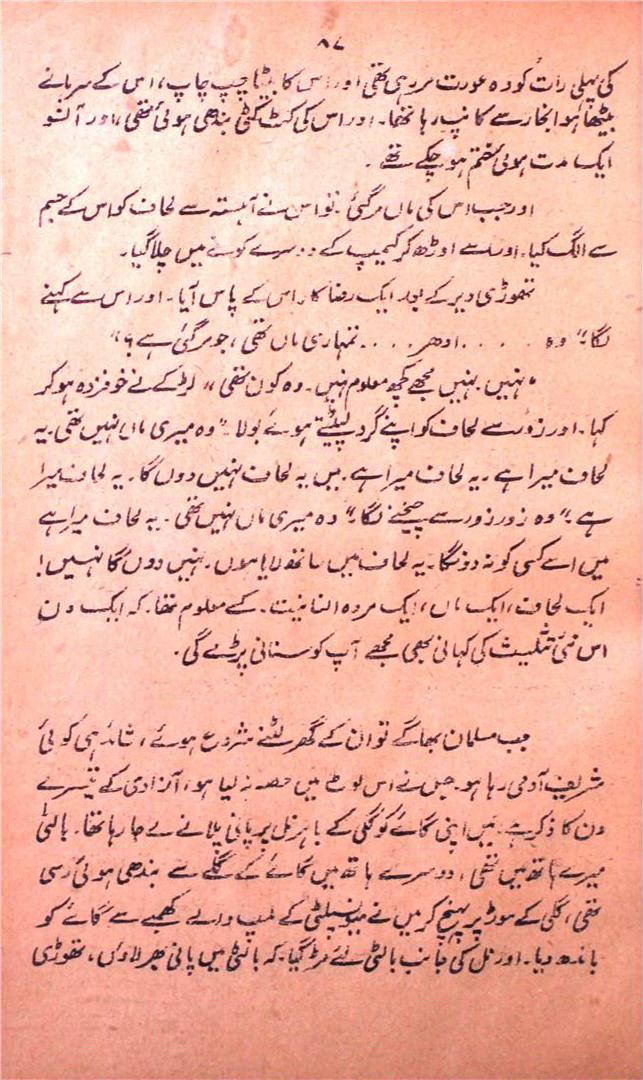 ۸۷
کی پہلی رات کو وہ عورت مر رہی تھی اور اس کا بیٹا چپ چاپ، اس کے سرہانے
بیٹھا ہوا بخار سے کانپ رہا تھا۔ اور اس کی گھٹ گھٹی بندھی ہوئی تھی، اور آنسو
ایک مدت ہوئی ختم ہو چکے تھے۔
اور جب اس کی ماں مر گئی۔ تو اس نے آہستہ سے لحاف کو اس کے جسم
سے الگ کیا۔ اور اسے اوڑھ کر کیمپ کے دوسرے کونے میں چلا گیا۔
تھوڑی دیر کے بعد ایک رضا کار اس کے پاس آیا۔ اور اس سے کہنے
لگا۔" وہ ..... ادھر .... تمہاری ماں تھی، جو مر گئی ہے؟"
"نہیں۔ نہیں مجھے کچھ معلوم نہیں۔ وہ کون تھی" لڑکے نے خوفزدہ ہو کر
کہا۔ اور زور سے لحاف کو اپنے گرد لپیٹتے ہوئے بولا۔" وہ میری ماں نہیں تھی۔ یہ
لحاف میرا ہے۔ یہ لحاف میرا ہے۔ میں یہ لحاف نہیں دوں گا۔ یہ لحاف میرا
ہے۔" وہ زور زور سے چیخنے لگا۔" وہ میری ماں نہیں تھی۔ یہ لحاف میرا ہے
میں اسے کسی کو نہ دونگا۔ یہ لحاف میں ساتھ لایا ہوں۔ نہیں دوں گا نہیں!
ایک لحاف، ایک ماں، ایک مردہ انسانیت۔ کسے معلوم تھا۔ کہ ایک دن
اس نئی تثلیث کی کہانی بھی مجھے آپ کو سنانی پڑے گی۔
جب مسلمان بھاگے تو ان کے گھر لٹنے شروع ہوئے، شائد ہی کوئی
شریف آدمی رہا ہو۔ جس نے اس لوٹ میں حصہ نہ لیا ہو، آزادی کے تیسرے
دن کا ذکر ہے۔ میں اپنی گائے کو گلی کے باہر نل پر پانی پلانے لے جا رہا تھا۔ بالٹی
میرے ہاتھ میں تھی، دوسرے ہاتھ میں گائے کے گلے سے بندھی ہوئی رسی
تھی، گلی کے موڑ پر پہنچ کر میں نے میونسپلٹی کے لمپ والے کھمبے سے گائے کو
باندھ دیا۔ اور نل کی جانب بالٹی لئے مڑ گیا۔ کہ بالٹی میں پانی بھر لاؤں، تھوڑی